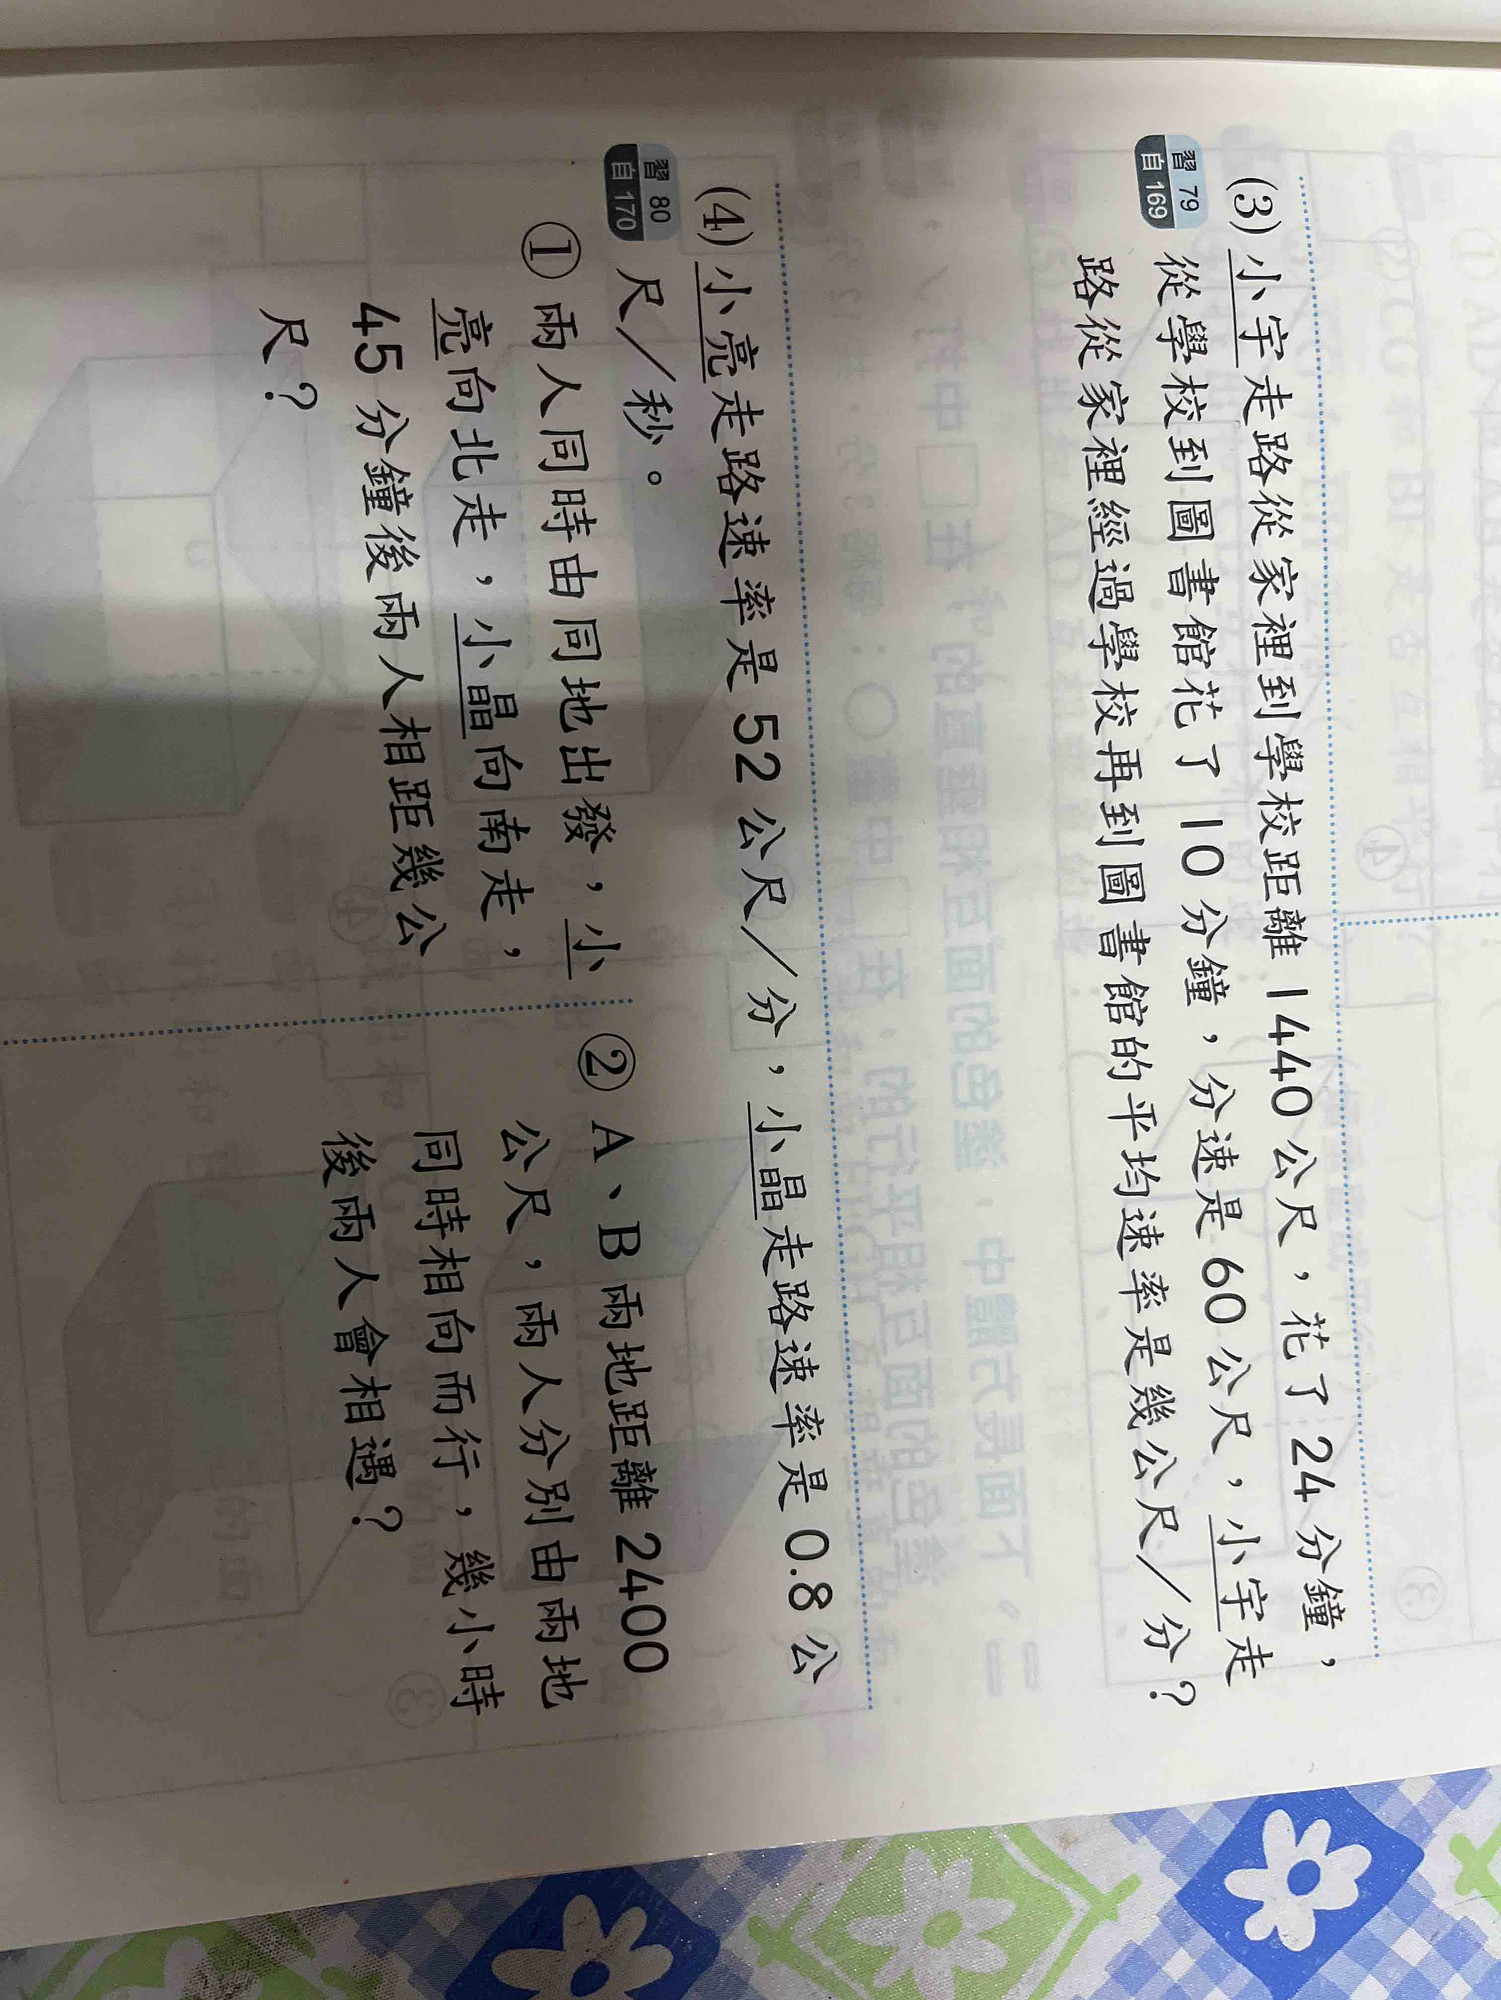 (3) 小宇走路從家裡到學校距離 1440 公尺，花了 24 分鐘，
習 79
自 169
從學校到圖書館花了 10 分鐘，分速是 60 公尺，小宇走
路從家裡經過學校再到圖書館的平均速率是幾公尺／分？
(4) 小亮走路速率是 52 公尺／分，小晶走路速率是 0.8 公
習 80
自 170
尺／秒。
① 兩人同時由同地出發，小
亮向北走，小晶向南走，
45 分鐘後兩人相距幾公
尺？
② A、B 兩地距離 2400
公尺，兩人分別由兩地
同時相向而行，幾小時
後兩人會相遇？